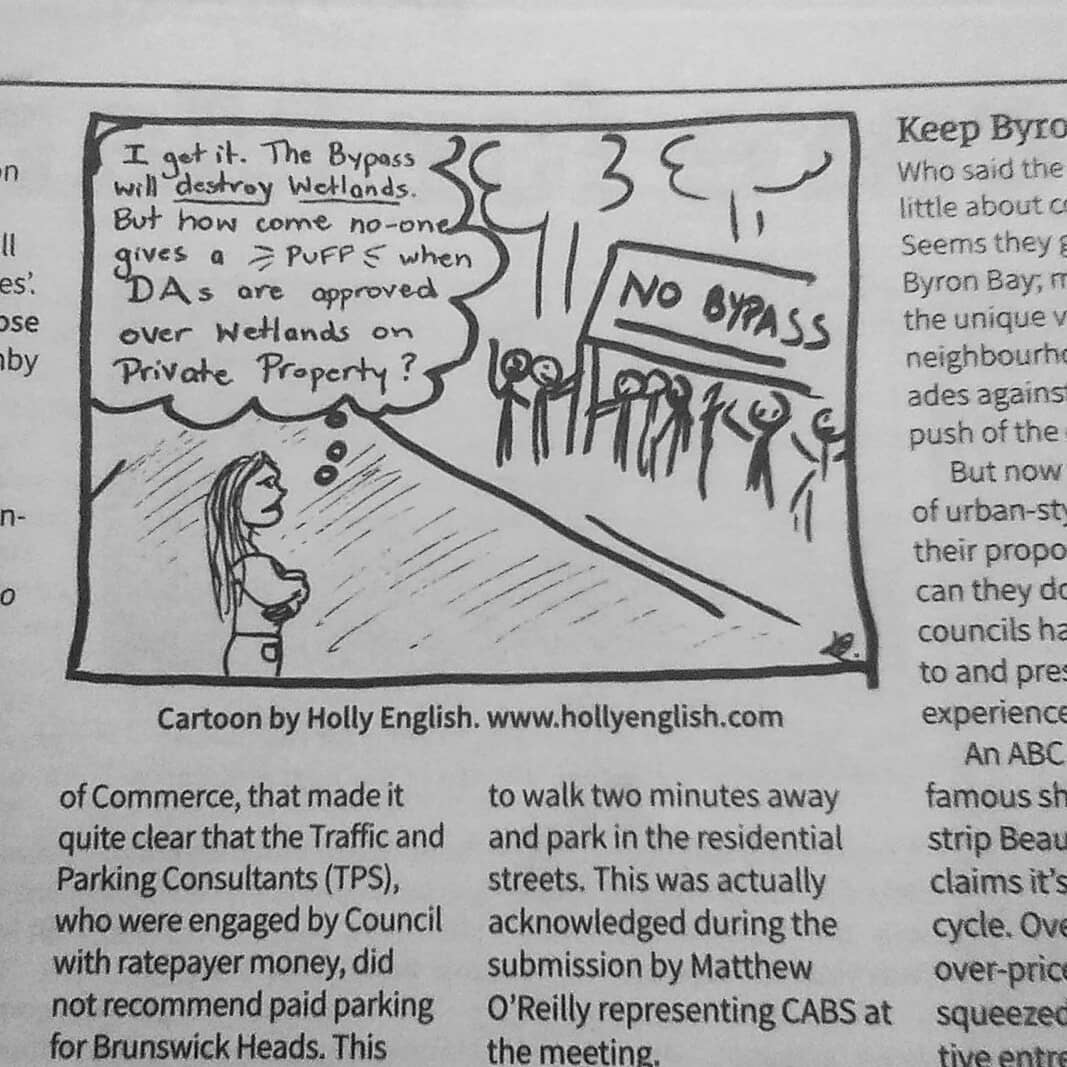 I get it. The Bypass
will destroy Wetlands.
But how come no-one
gives a PUFF when
DAs are approved
over Wetlands on
Private Property?
NO BYPASS
Cartoon by Holly English. www.hollyenglish.com
of Commerce, that made it
quite clear that the Traffic and
Parking Consultants (TPS),
who were engaged by Council
with ratepayer money, did
not recommend paid parking
for Brunswick Heads. This
to walk two minutes away
and park in the residential
streets. This was actually
acknowledged during the
submission by Matthew
O'Reilly representing CABS at
the meeting.
Keep Byro
Who said the
little about
Seems they
Byron Bay;
the unique
neighbourho
ades against
push of the
But now
of urban-sty
their propo
can they do
councils ha
to and pres
experience
An ABC
famous sh
strip Beau
claims it's
cycle. Ove
over-price
squeezed
tive entre